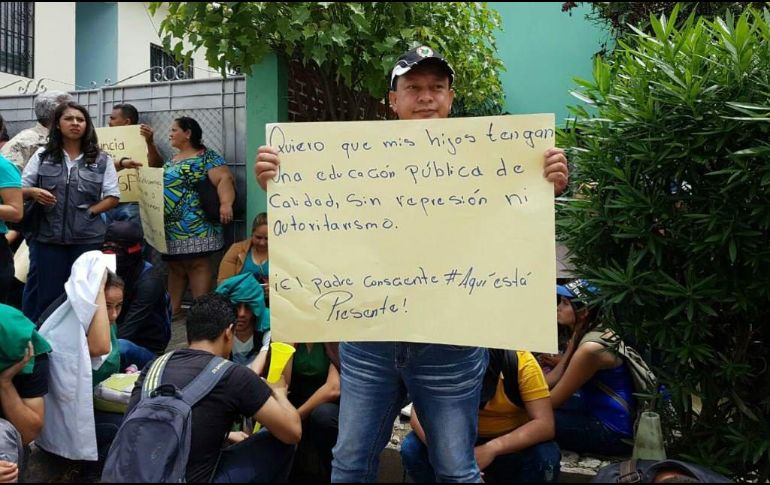 Quiero que mis hijos tengan
una educación pública de
Calidad, sin represión ni
autoritarismo.
¡El padre consciente #Aquí está
Presente!